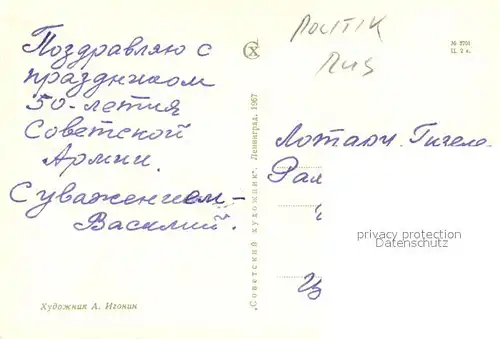 Поздравляю с
праздником
50-летия
Советской
Армии.
С уважением -
Василий.
Художник А. Игонин
"Советский художник". Ленинград. 1967
POLITIK
RUS
№ 2701
Ц. 2 к.
Лотаюч. Гигело-
Рам
privacy protection
Datenschutz